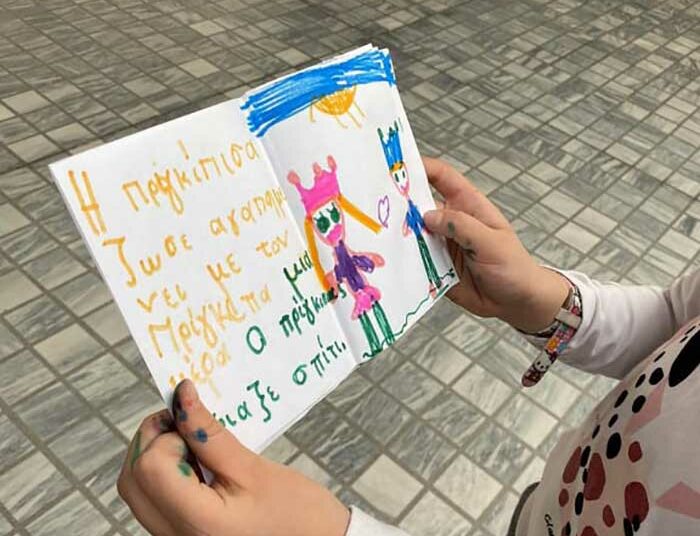 Η πριγκίπισα
ζωσε αγαπημ
νει με τον
Πρίγκιπα μια
μέρα Ο πρίγκιπας
ιαξε σπίτι.